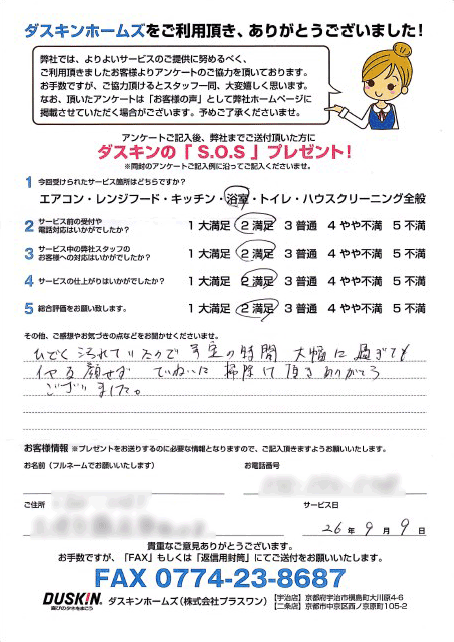 ダスキンホームズをご利用頂き、ありがとうございました！
弊社では、よりよいサービスのご提供に努めるべく、
ご利用頂きましたお客様よりアンケートのご協力を頂いております。
お手数ですが、ご協力頂けるとスタッフ一同、大変嬉しく思います。
なお、頂いたアンケートは「お客様の声」として弊社ホームページに
掲載させていただく場合がございます。予めご了承くださいませ。
アンケートご記入後、弊社までご送付頂いた方に
ダスキンの「S.O.S」プレゼント！
※同封のアンケートご記入例に沿ってご記入くださいませ。
1 今回受けられたサービス箇所はどちらですか？
エアコン・レンジフード・キッチン・浴室・トイレ・ハウスクリーニング全般
2 サービス前の受付や
電話対応はいかがでしたか？ 1 大満足 2 満足 3 普通 4 やや不満 5 不満
3 サービス中の弊社スタッフの
お客様への対応はいかがでしたか？ 1 大満足 2 満足 3 普通 4 やや不満 5 不満
4 サービスの仕上がりはいかがでしたか？ 1 大満足 2 満足 3 普通 4 やや不満 5 不満
5 総合評価をお願い致します。 1 大満足 2 満足 3 普通 4 やや不満 5 不満
その他、ご感想やお気づきの点などをお聞かせくださいませ。
ひどく汚れていたので予定の時間 大幅に過ぎても
イヤな顔せず ていねいに掃除して頂きありがとう
ございました。
お客様情報 ※プレゼントをお送りするのに必要な情報となりますので、ご記入頂きますようお願いいたします。
お名前（フルネームでお願いいたします） お電話番号
ご住所 サービス日
26 年 9 月 9 日
貴重なご意見ありがとうございます。
お手数ですが、「FAX」もしくは「返信用封筒」にてご送付をお願いいたします。
FAX 0774-23-8687
DUSKIN 喜びのタネをまこう ダスキンホームズ（株式会社プラスワン） 【宇治店】京都府宇治市槇島町大川原4-6
【二条店】京都市中京区西ノ京原町105-2